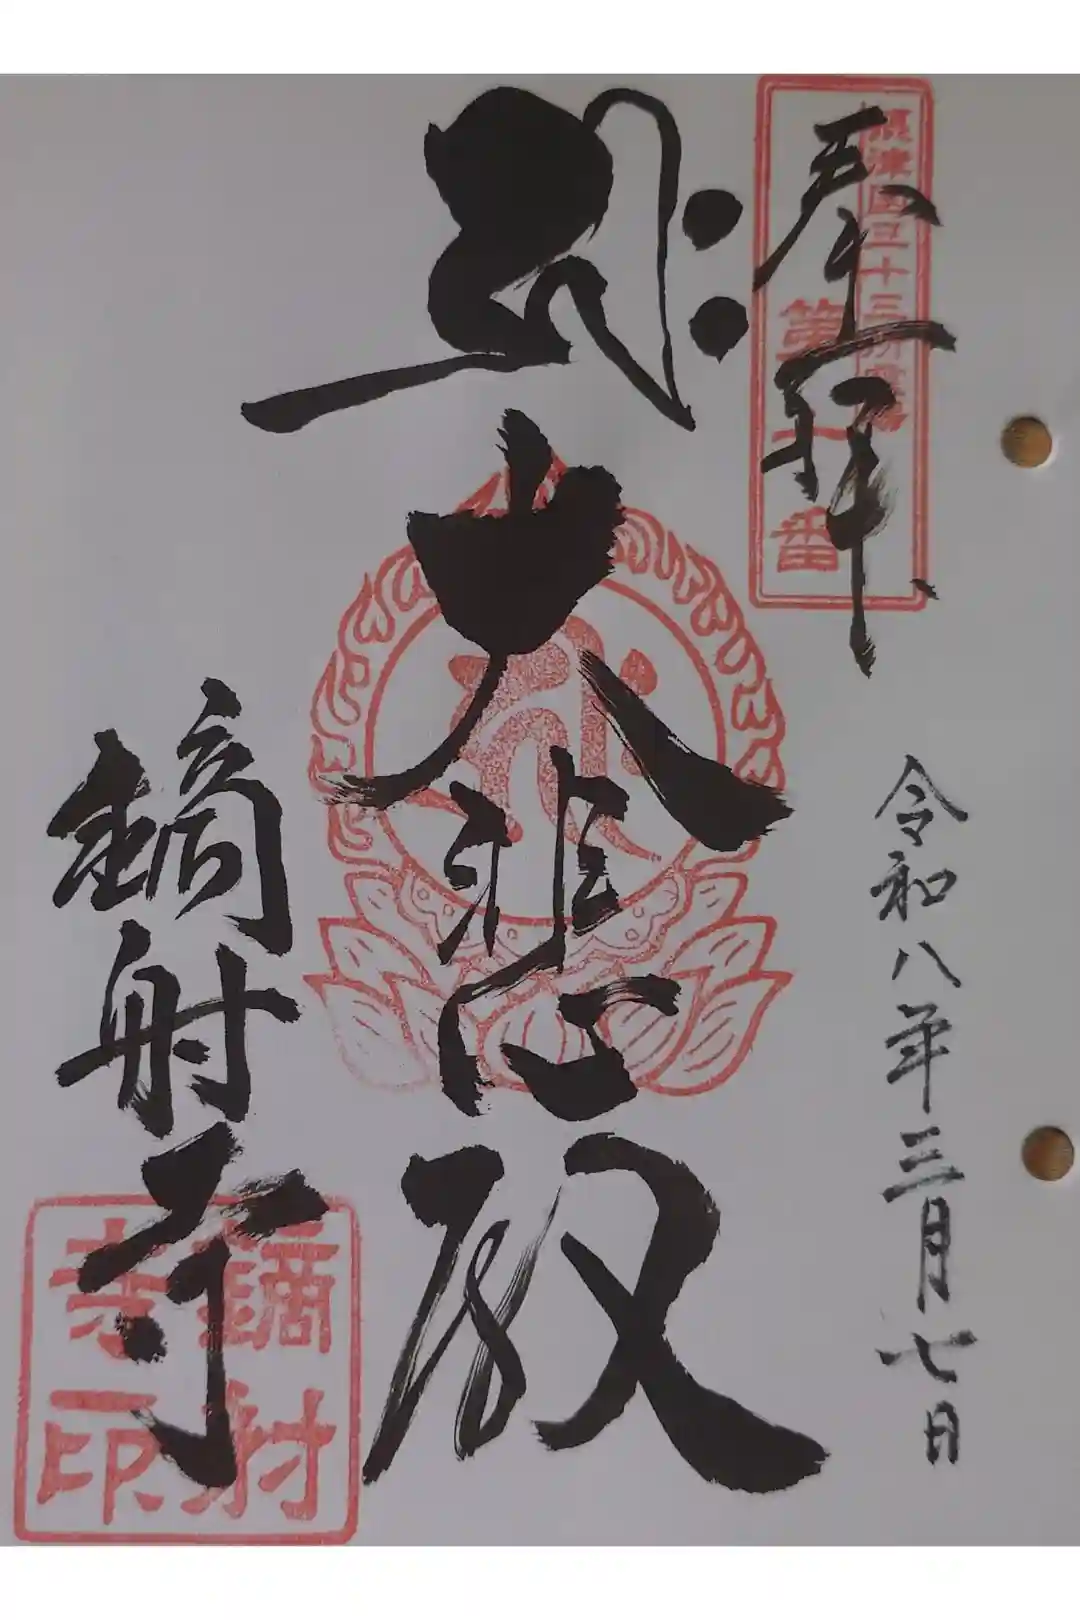 奉拝
摂津国三十三所霊場
第一番
令和八年三月七日
𑖮𑖿𑖨𑖱𑖾
大悲殿
鏑射寺
鏑射
寺印